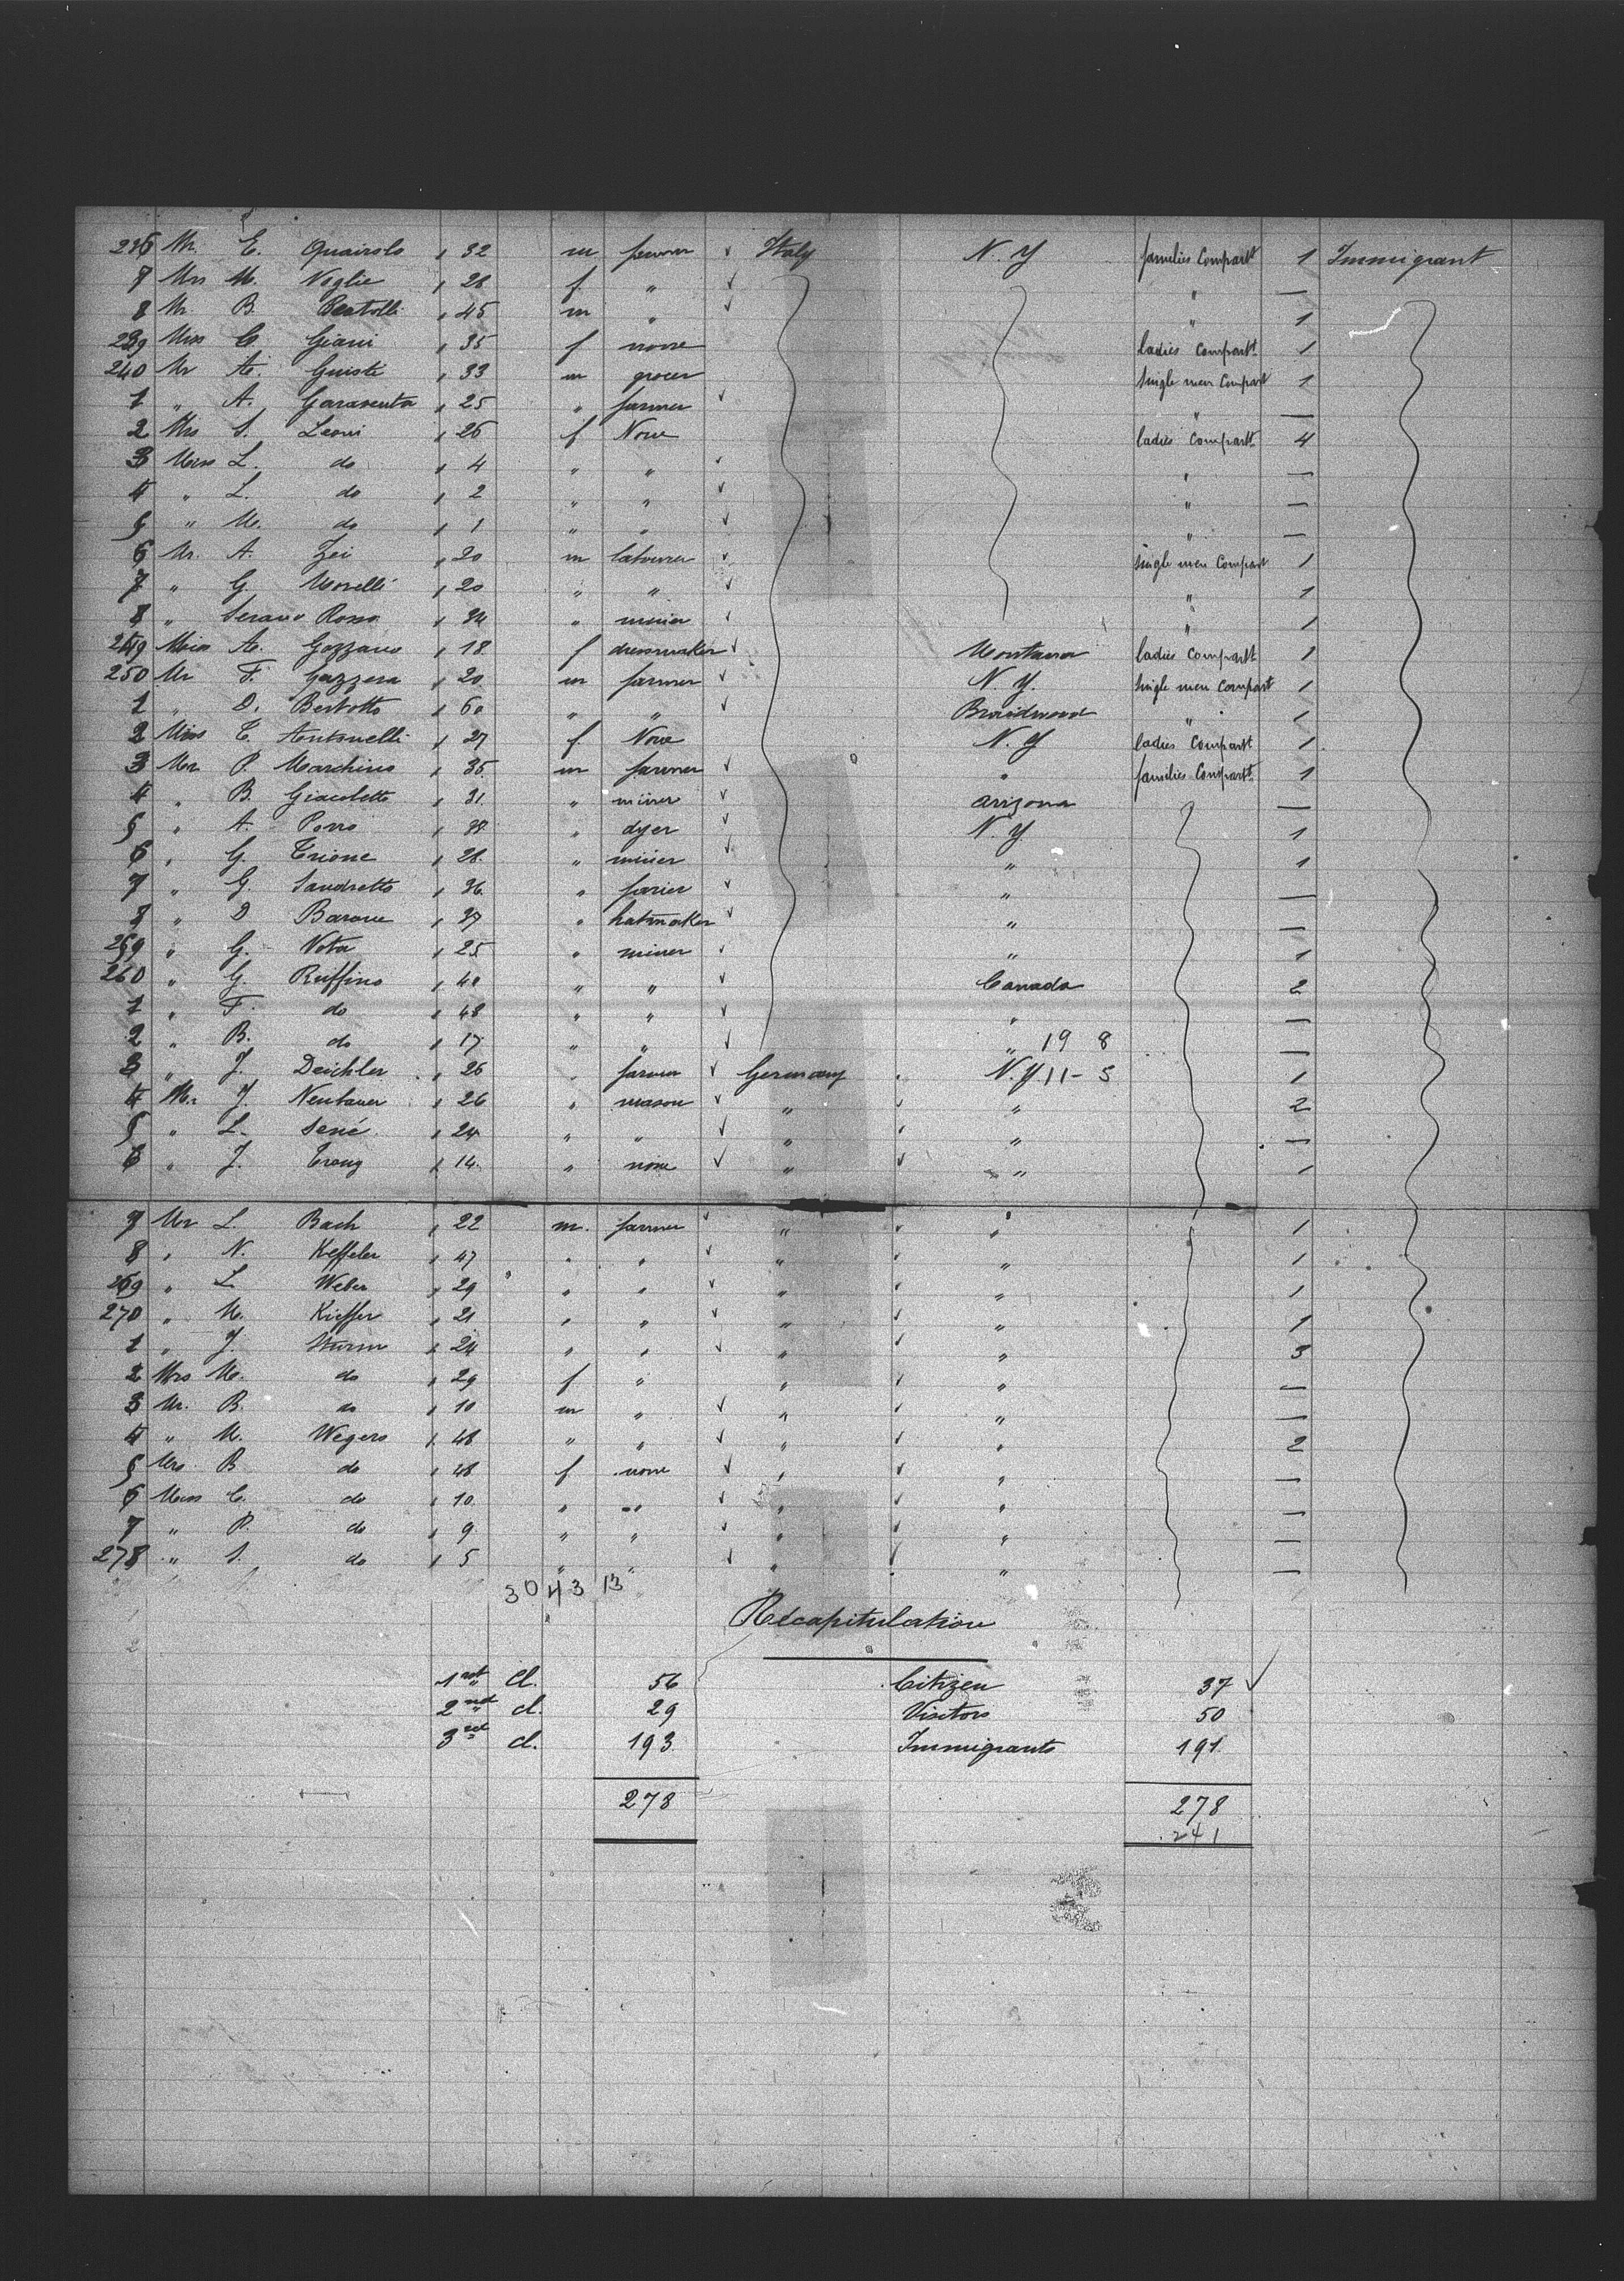 236 Mr. E. Quairolo " 32 m farmer ✓ Italy N. Y families Compartt 1 Immigrant
7 Mrs M. Noglie " 28 f " ✓ " —
8 Mr B. Bertolli " 45 m " ✓ " 1
239 Miss C. Giani " 35 f none ladies Compartt 1
240 Mr A. Guiste " 33 m grocer Single men Compart 1
1 " A. Garaventa " 25 " farmer ✓ " —
2 Mrs S. Leoni " 26 f None ladies Compartt 4
3 Miss L. do " 4 " " ✓ " —
4 " L. do " 2 " " ✓ " —
5 " M. do " 1 " " ✓ " —
6 Mr. A. Zei " 20 m labourer ✓ Single men Compart 1
7 " G. Morelli " 20 " " ✓ " 1
8 " Serano Rosso " 34 " miner ✓ " 1
249 Miss A. Gozzano " 18 f dressmaker ✓ Montana ladies Compartt 1
250 Mr F. Gazzera " 20 m farmer ✓ N. Y. Single men Compart 1
1 " D. Bertotto " 60 " " ✓ Braidwood " 1
2 Miss C. Antonelli " 27 f None N. Y ladies Compartt 1
3 Mr P. Marchino " 35 m farmer ✓ " families Compartt 1
4 " B. Giacoletto " 31 " miner ✓ Arizona —
5 " A. Porro " 38 " dyer ✓ N. Y 1
6 " G. Trione " 28 " miner ✓ " 1
7 " G. Sandretto " 36 " farier ✓ " —
8 " D Barone " 37 " hatmaker ✓ " —
259 " G. Nota " 25 " miner ✓ " 1
260 " G. Ruffino " 40 " " ✓ Canada 2
1 " F. do " 48 " " ✓ " —
2 " B. do " 17 " " ✓ " 19 8 —
3 " J. Deichler " 26 " farmer ✓ Germany N. Y. 11-5 1
4 Mr. J. Neubauer " 26 " mason ✓ " " 2
5 " L. Sené " 24 " " ✓ " " —
6 " J. " 14 " none ✓ " " 1
7 Mr L. Bach " 22 m. farmer ✓ " " 1
8 " N. Keffeler " 47 " " ✓ " " 1
269 " L Weber " 29 " " ✓ " " 1
270 " M. Kieffer " 21 " " ✓ " " 1
1 " J. Sturm " 24 " " ✓ " " 3
2 Mrs M. do " 29 f " " " —
3 Mr. B. do " 10 m " ✓ " " —
4 " M. Wegers " 48 " " ✓ " " 2
5 Mrs B do " 48 f none ✓ " " —
6 Miss C. do " 10 " " " " —
7 " P. do " 9 " " ✓ " " —
278 " S. do " 5 " " ✓ " " —
30 43 13
Recapitulation
1rst Cl. 56 Citizen 37 ✓
2nd cl. 29 Visitors 50
3rd cl. 193 Immigrants 191
278 278
241